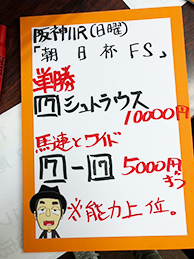 阪神11R(日曜)
「朝日杯FS」
単勝
17 シュトラウス
10000円
馬連とワイド
7-17 5000円
ずつ
※能力上位。